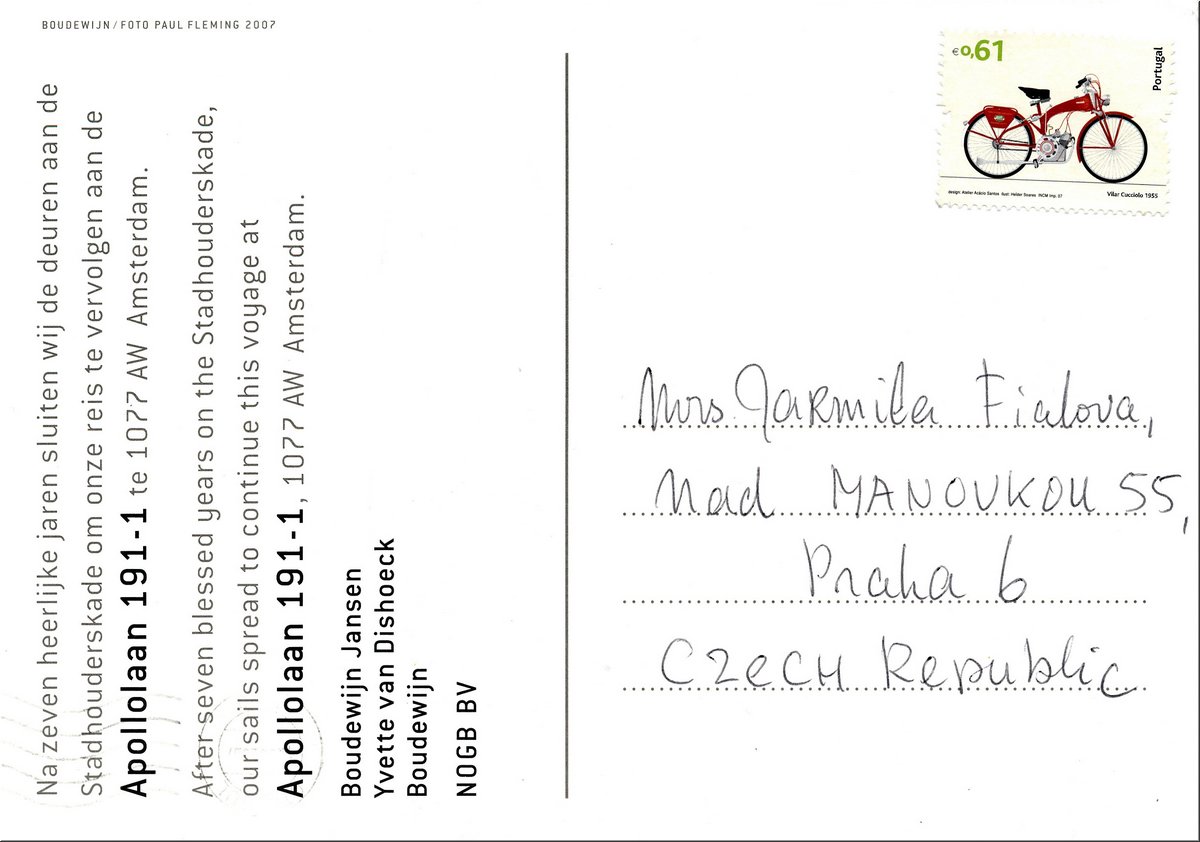 BOUDEWIJN/FOTO PAUL FLEMING 2007
Na zeven heerlijke jaren sluiten wij de deuren aan de
Stadhouderskade om onze reis te vervolgen aan de
Apollolaan 191-1 te 1077 AW Amsterdam.
After seven blessed years on the Stadhouderskade,
our sails spread to continue this voyage at
Apollolaan 191-1, 1077 AW Amsterdam.
Boudewijn Jansen
Yvette van Dishoeck
Boudewijn
NOGB BV
€0,61
Portugal
design: Atelier Acácio Santos ilust: Helder Soares INCM Imp. 07
Vilar Cucciolo 1955
Mrs Jarmila Fialova,
Nad MANOVKOU 55,
Praha 6
CZECH Republic